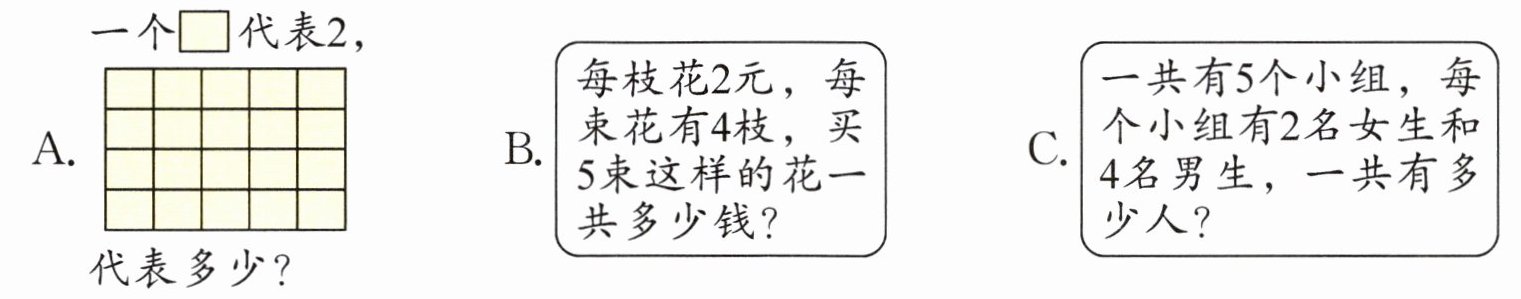 一个□代表2，
A.
代表多少？
B.
每枝花2元，每
束花有4枝，买
5束这样的花一
共多少钱？
C.
一共有5个小组，每
个小组有2名女生和
4名男生，一共有多
少人？